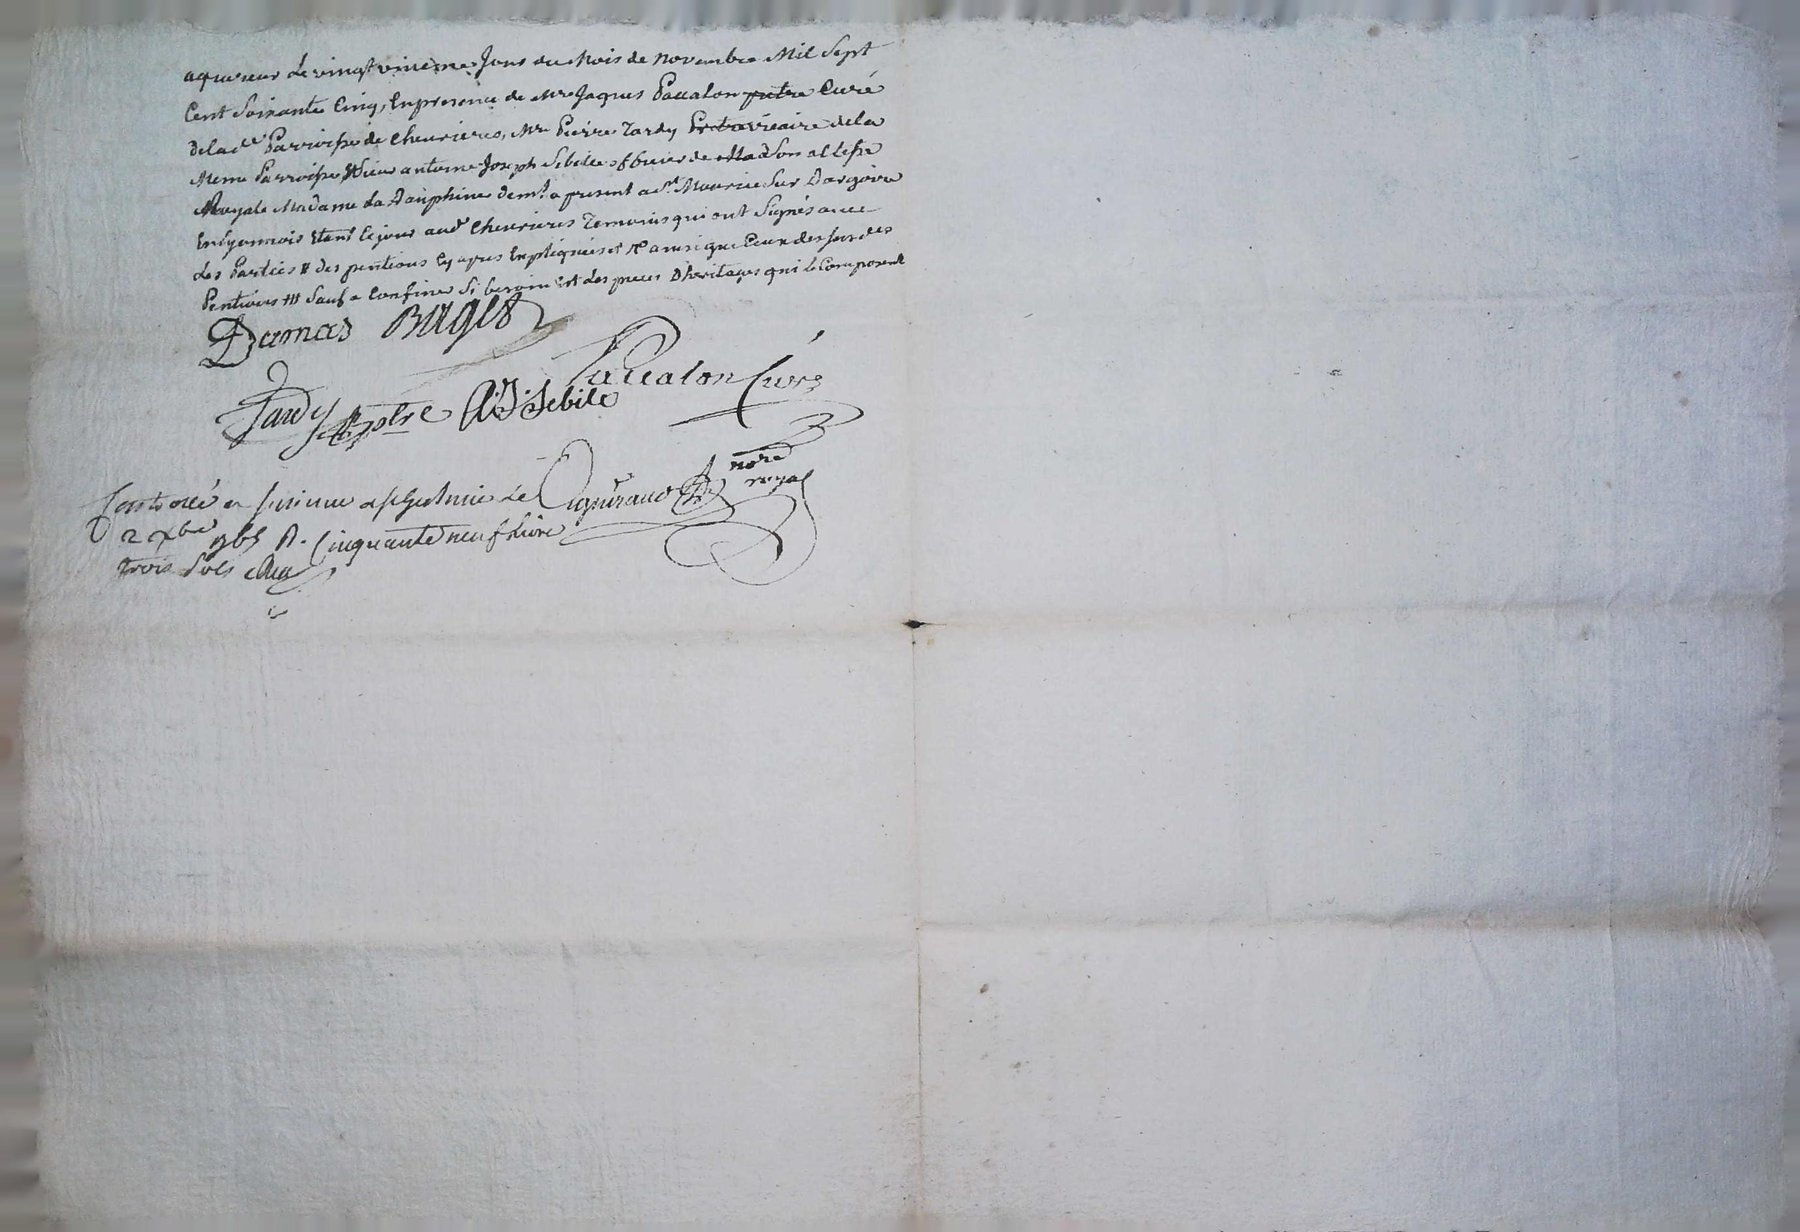 aquereur Le vingt unieme Jour du Mois de novembre Mil Sept
Cent Soixante Cinq, En presence de Mre Jaques Paccalon pretre Curé
de la de Parroisse de Chevrieres, Mre Pierre Tardy Pretre vicaire de la
Meme Parroisse Sieur antoine Joseph Sebile officier de Madson altesse
Royale Madame La Dauphine demt a present a St Maurice Sur Dargoire
En lyonnois Etant ce jour aud Chevrieres Temoins qui ont Signés avec
Les Parties # des pentions cy apres Expliquées # ainsi que Ceux des
Pentions ### Sauf a Confiner Si besoin Est des pieces D'heritages qui le Composent
Damas Buget
Paccalon Curé
Tardy ptre A:J:Sebile
nore
royal
Controllé a st Le
2 Xbre 1765 R. Cinquante neuf Livre
trois Sols